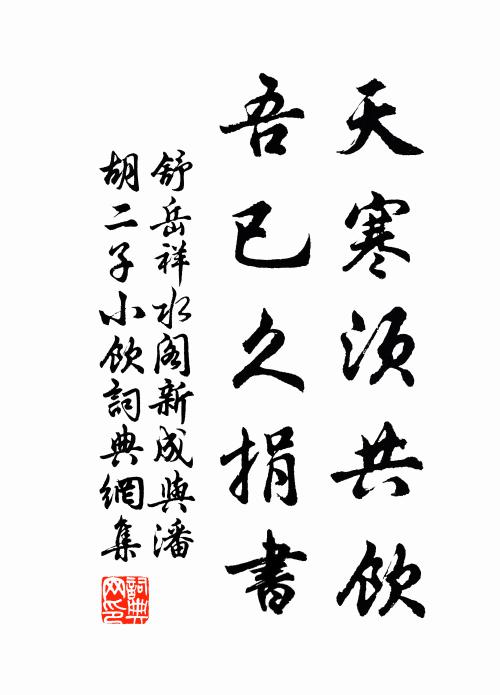 天寒須共飲
吾已久捐書
舒岳祥水閣新成與潘
胡二子小飲詞典網集
詞典
网印